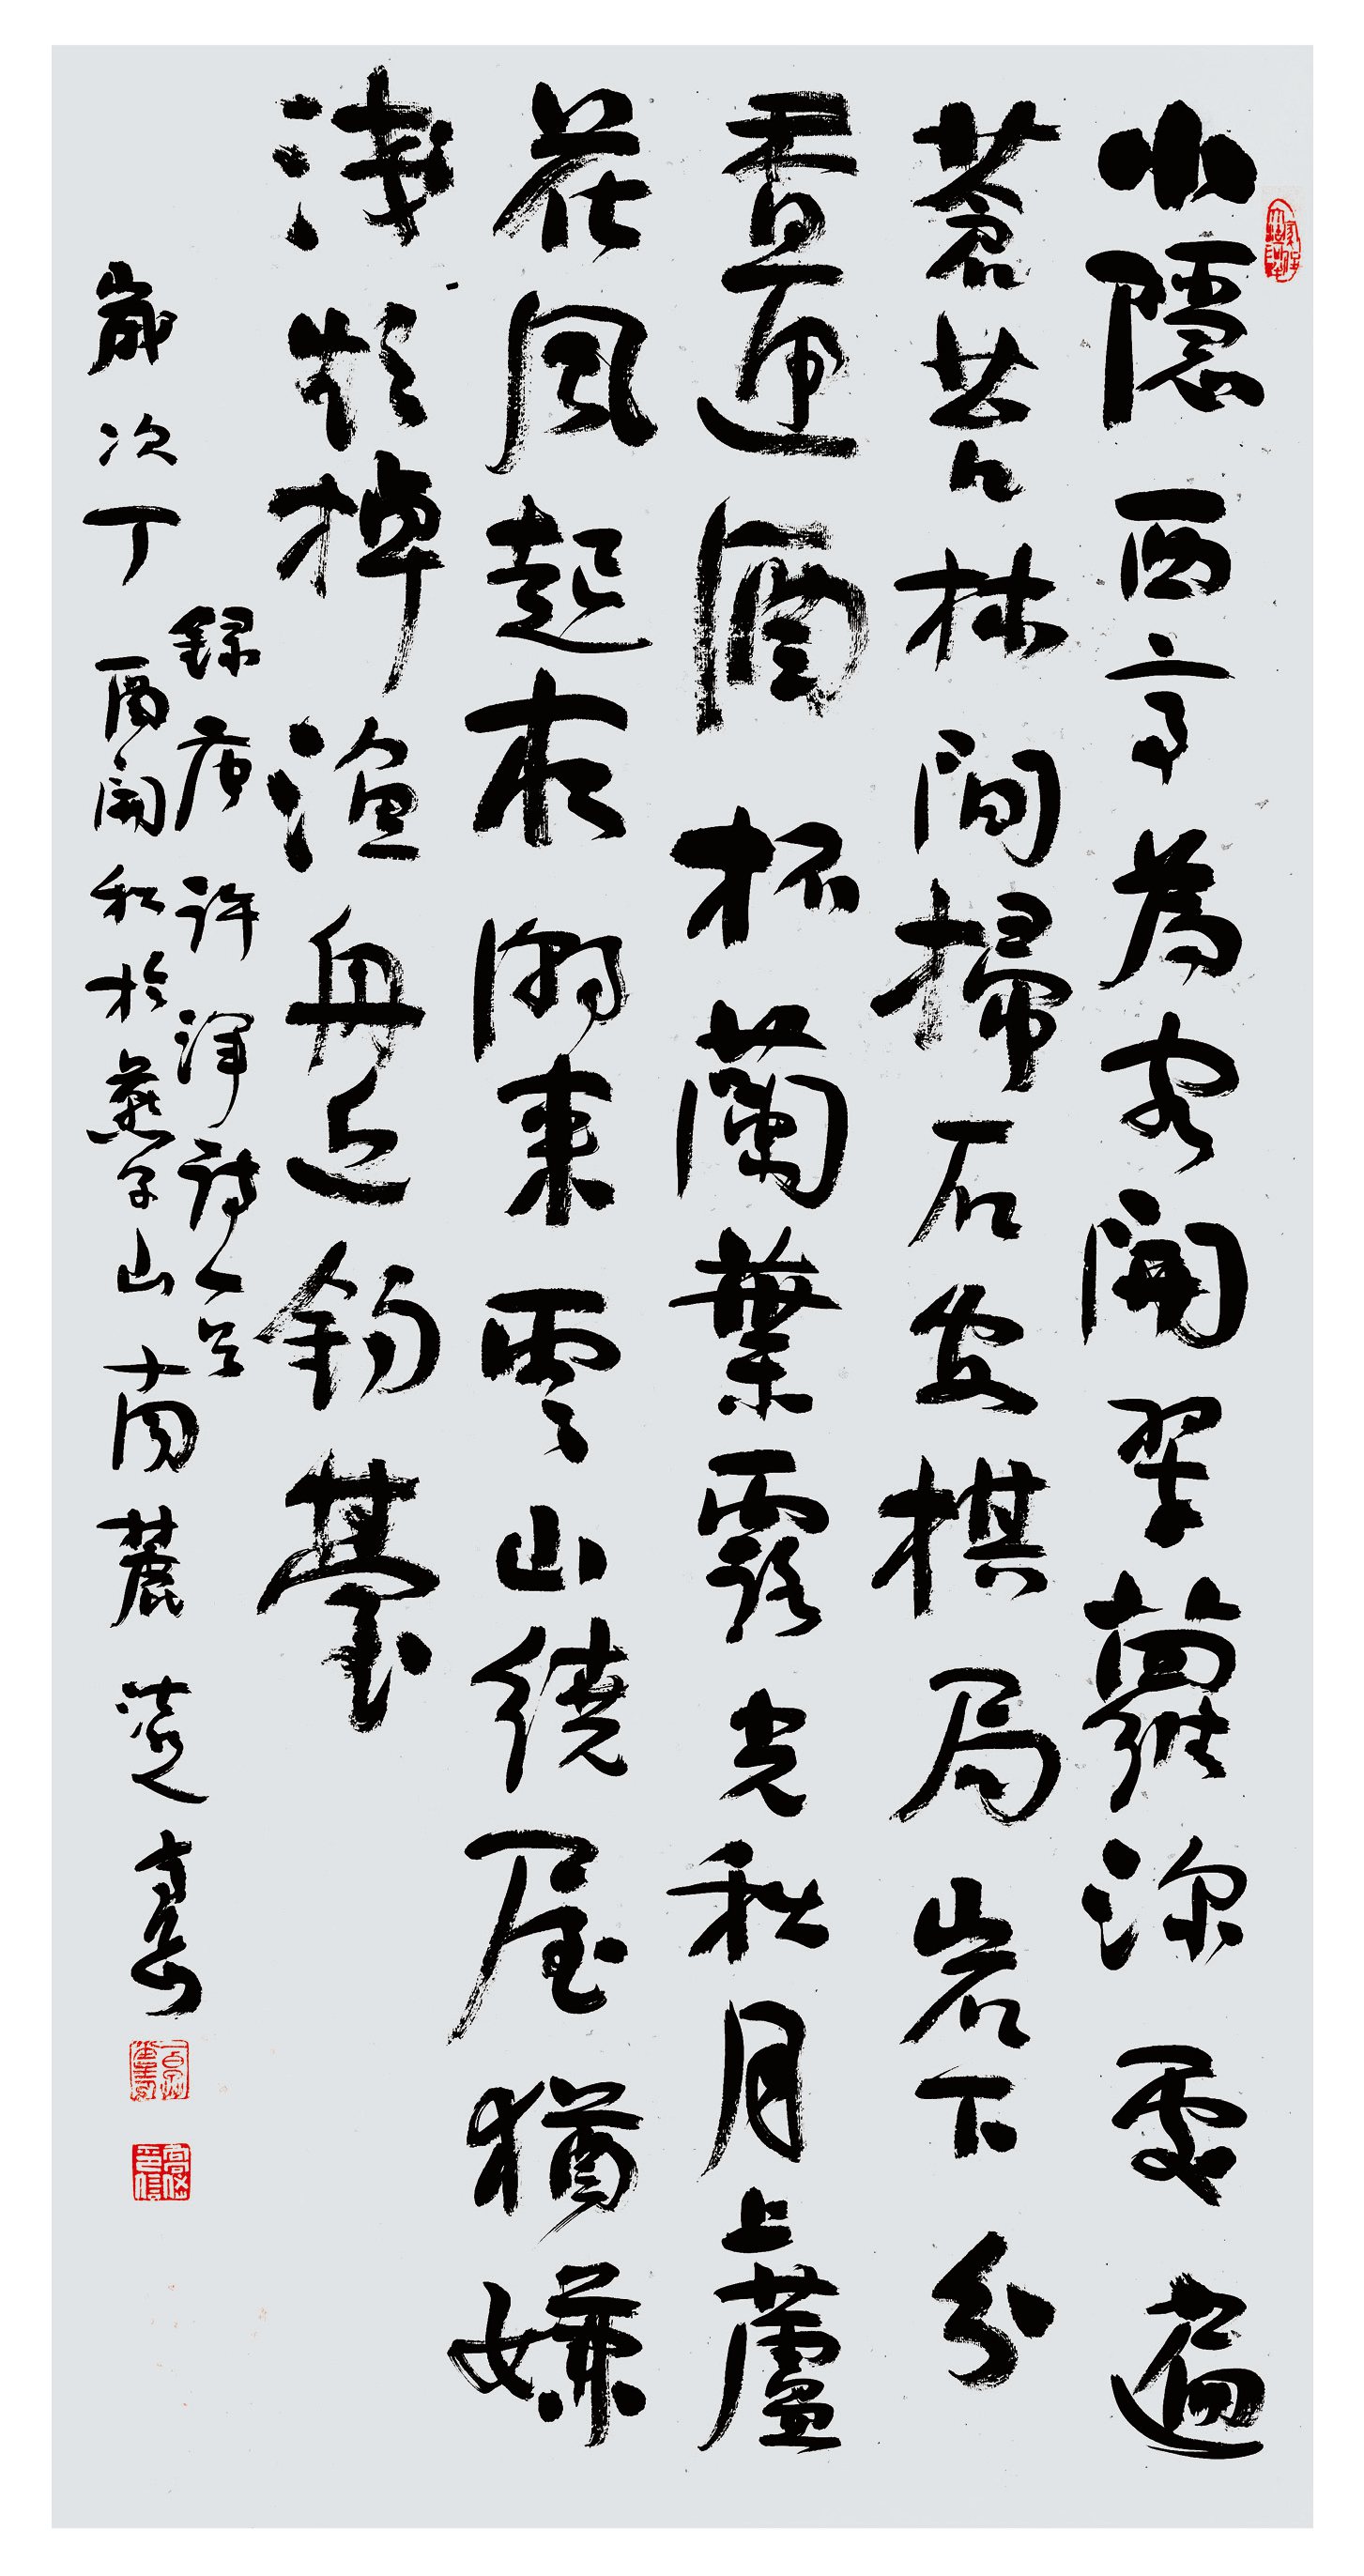 小隱西亭為客開翠蘿深處遍
蒼苔林間掃石安棋局岩下分
香遞酒杯蘭葉露光秋月上蘆
花風起夜潮來雲山繞屋猶嫌
淺欲棹漁舟近釣臺
錄唐許渾詩一首
歲次丁酉開秋於燕子山南麓